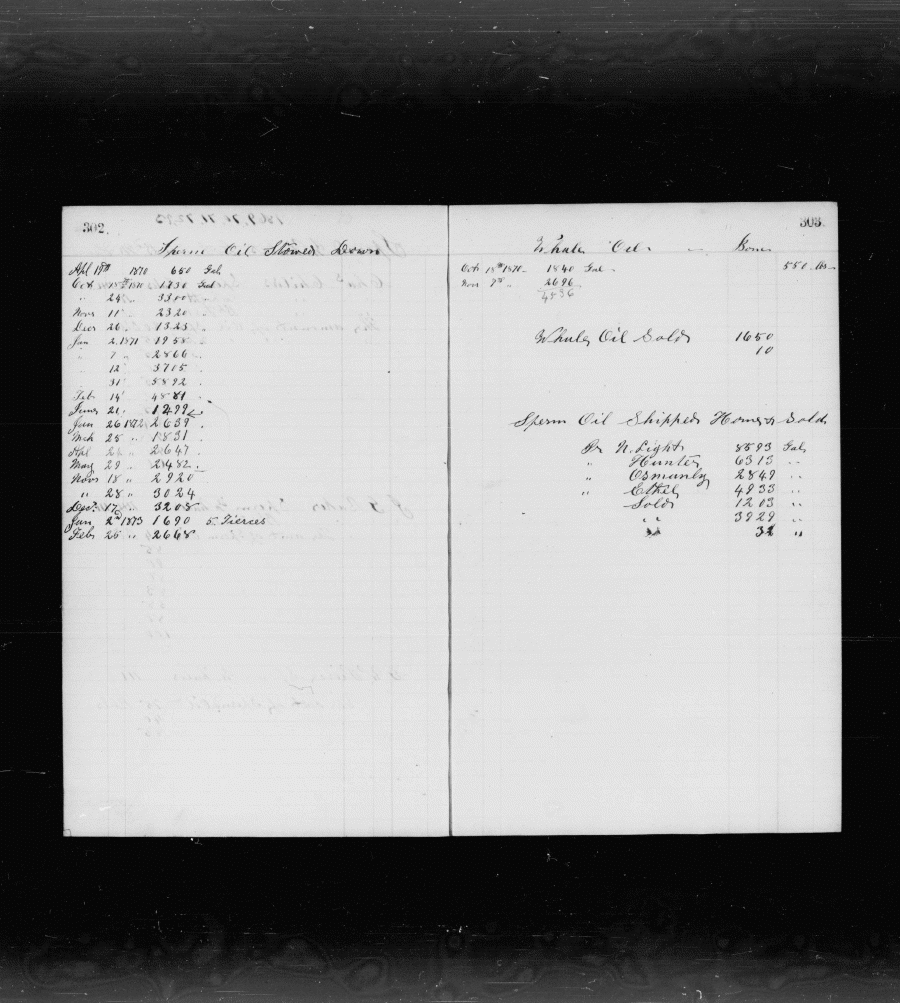 302
Sperm Oil Stowed Down
Apl 19th 1870 650 Gal
Oct 18th 1870 1730 Gal
" 24 " 3300 "
Novr 11 " 2320 "
Decr 26 " 1323 "
Jan 2, 1871 1958 "
" 7 " 2866 "
" 12 " 3705 "
" 31 " 5892 "
Feb 14 " 4881 "
June 21 " 1299
Jan 26 1872 2639 "
Mch 25 " 1831 "
Apl " 2647 "
May 29 " 2482 "
Novr 18 " 2920 "
" 28 " 3024
Decr 17 3208
Jan 2nd 1873 1690 5 Tierces
Feb 25 " 2668
303
Whale Oil Bone
Oct 18th 1870 1840 Gal 550 lbs
Nov 7th " 2696
4536
Whale Oil Sold 1650
10
Sperm Oil Shipped Home & Sold
Pr N. Light 8593 Gal
" Hunter 6313 "
" Osmanly 2849 "
" Ethel 4933 "
Sold 1203 "
" 3929 "
32 "